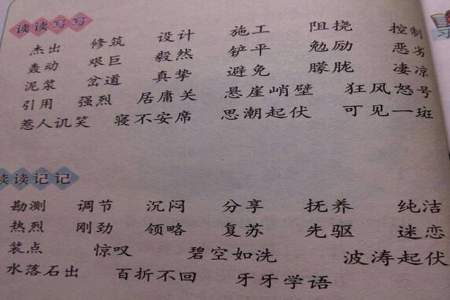 读读写写
杰出 修筑 设计 施工 阻挠 控制
轰动 艰巨 毅然 铲平 勉励 恶劣
泥浆 岔道 真挚 避免 朦胧 凄凉
引用 强烈 居庸关 悬崖峭壁 狂风怒号
惹人讥笑 寝不安席 思潮起伏 可见一斑
读读记记
勘测 调节 沉闷 分享 抚养 纯洁
热烈 刚劲 领略 复苏 先驱 迷恋
装点 惊叹 碧空如洗 波涛起伏
水落石出 百折不回 牙牙学语
习